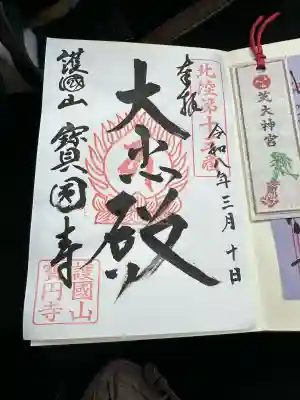 奉拝
北陸第十三番
令和八年三月十日
大悲殿
護國山 寶圓寺
護國山
寶円寺
芝大神宮